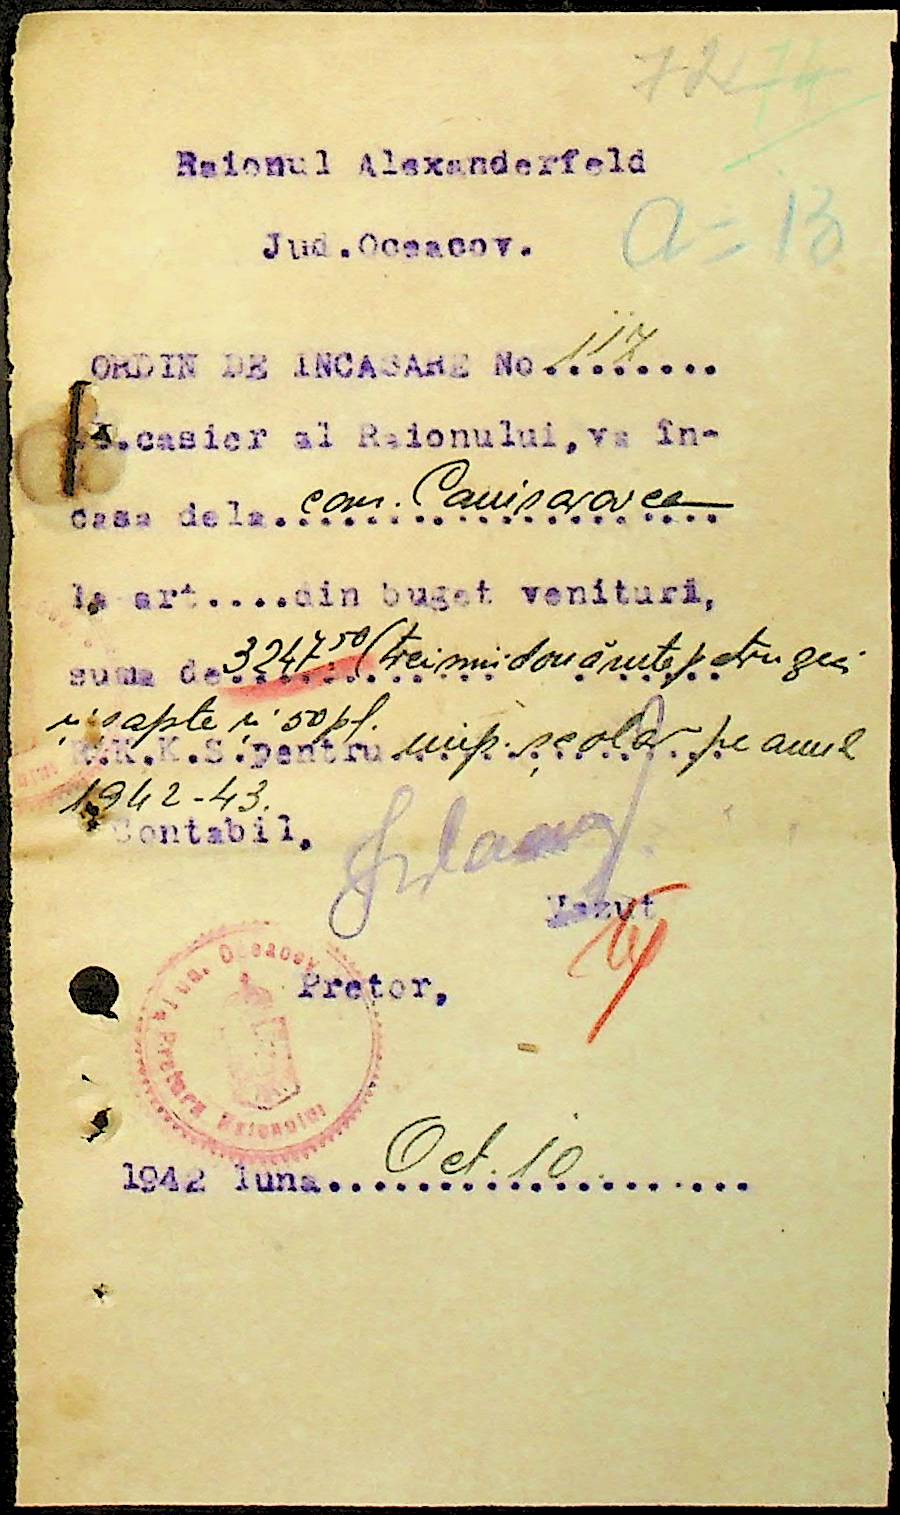 72 74
Raionul Alexanderfeld
a = 13
Jud.Oceacov.
ORDIN DE INCASARE No 117........
D.casier al Raionului,va în-
casa dela com. Canisarovca
la art....din buget venituri,
suma de 3247 50 (trei mii două sute patru zeci
și șapte și 50 pf.
R.K.K.S.pentru imp. școlar pe anul
1942-43.
Contabil,
Vazut
Pretor,
Jud. Oceacov
Pretura Raionului
1942 luna Oct. 10